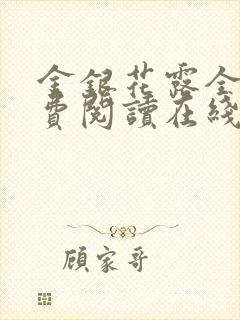 金銀花露全
費閱讀在綫
顧家哥